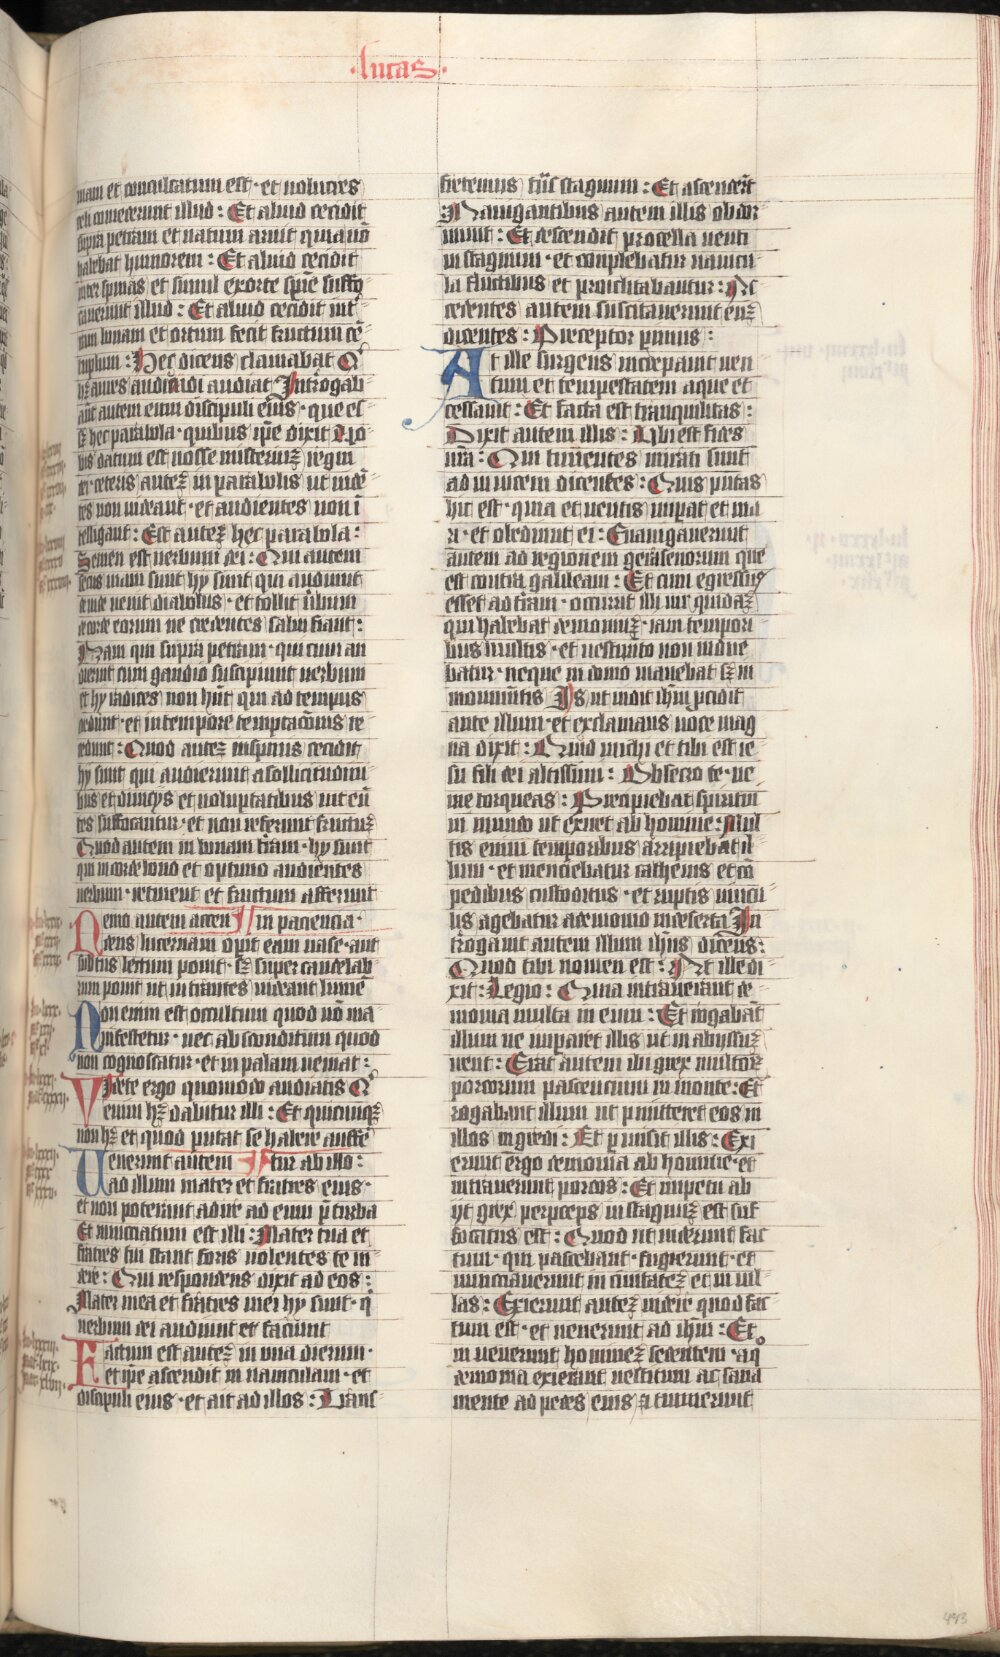 ·lucas·
uiam et conculcatum est · et uolucres
celi comederunt illud : Et aliud cecidit
supra petram et natum aruit quia nō
habebat humorem : Et aliud cecidit
inter spinas et simul exorte spīe suffo
cauerunt illud : Et aliud cecidit int̄
ram bonam et ortum fecit fructum cē
tuplum : Hec dicens clamabat Qͥ
hꝫ aures audiendi audiat Introgab
āt autem eum discipuli eius · que es
sꝫ hec parabola · quibus ip̄e dixit Uo
bis datum est nosse misteriuꝫ regni
dei ceteris auteꝫ in parabolis ut uidē
tes non uideant · et audientes non ī
telligant : Est auteꝫ hec parabola :
Semen est uerbum dei : Qui autem
secus uiam sunt hy sunt qui audiunt
deinde uenit diabolus · et tollit ūbum
de corde eorum ne credentes salui fiant :
Nam qui supra petram · qui cum au
dierint cum gaudio suscipiunt uerbum
et hy radices non hn̄t qui ad tempus
credunt · et in tempore temptac̄ōnis re
cedunt : Quod auteꝫ inspinis cecidit
hy sunt qui audierunt a sollicitudini
bus et diuicijs et uoluptatibus uite eū
tes suffocantur · et non referunt fructuꝫ
Quod autem in bonam t̄ram · hy sunt
qui in corde bono et optimo audientes
uerbum · retinent et fructum afferunt
Nemo autem accen in paciencia ·
dens lucernam opit eam uase · aut
subtus lectum ponit · sꝫ super candelab
rum ponit ut intrantes uideant lumē
Non enim est occultum quod nō ma
nifestetur · nec absconditum quod
non cognoscatur · et in palam ueniat :
Videte ergo quomodo audiatis Qͥ
enim hꝫ dabitur illi : Et quicunqꝫ
non hꝫ et quod putat se habere auffe
Uenerunt autem tur ab illo :
ad illum mater et fratres eius ·
et non poterant adire ad eum p̄ turba
Et nunciatum est illi : Mater tua et
fratres tui stant foris uolentes te ui
dere : Qui respondens dixit ad eos :
Mater mea et fratres mei hy sunt · qͥ
uerbum dei audiunt et faciunt
Factum est auteꝫ in una dierum ·
et ip̄e ascendit in nauiculam · et
discipuli eius · et ait ad illos : Trans
fretemus tn̄s stagnum : Et ascender̄t
Nauigantibus autem illis obdor
miuit : Et descendit procella uenti
in stagnum · et complebatur nauicu
la fluctibus et periclitabantur : Ac
cedentes autem suscitauerunt euꝫ
dicentes : Preceptor perimus :
At ille surgens increpauit uen
tum et tempestatem aque et
cessauit : Et facta est tranquilitas :
Dixit autem illis : Ubi est fides
ura : Qui timentes mirati sunt
ad inuicem dicentes : Quis putas
hic est · quia et uentis impat et ma
ri · et obediunt ei : Enauigauerunt
autem ad regionem gerasenorum que
est contra galileam : Et cum egressus
esset ad t̄ram · occurrit illi uir quidaꝫ
qui habebat demoniuꝫ · iam tempori
bus multis · et uestimto non indue
batur · neque in domo manebat sꝫ in
monumētis Is ut uidit ihm̄ pcidit
ante illum · et exclamans uoce mag
na dixit : Quid michi et tibi est ie
su fili dei altissimi : Obsecro te · ne
me torqueas : Precipiebat spiritui
in mundo ut exiret ab homine : Mul
tis enim temporibus arripiebat il
lum · et uinciebatur cathenis et cō
pedibus custoditus · et ruptis uincu
lis agebatur a demonio in deserta In
t̄rogauit autem illum ih̄us dicens :
Quod tibi nomen est : At ille di
xit : Legio : Quia intrauerant de
monia multa in eum : Et rogabāt
illum ne imparet illis ut in abyssuꝫ
irent : Erat autem ibi grex multorꝫ
porcorum pascencium in monte : Et
rogabant illum ut pmitteret eos in
illos ingredi : Et pmisit illis : Exi
erunt ergo demonia ab homine · et
intrauerunt porcos : Et impetu ab
ijt grex perpceps in stagnuꝫ est suf
focatus est : Quod ut uiderunt fac
tum · qui pascebant · fugierunt · et
nunciauerunt in ciuitateꝫ et in uil
las : Exierunt auteꝫ uidere quod fac
tum est · et uenerunt ad ih̄m : Et
inuenerunt homineꝫ sedentem · a q̄
demonia exierant uestitum ac sana
mente ad pedes eius ꝛ timuerunt
493